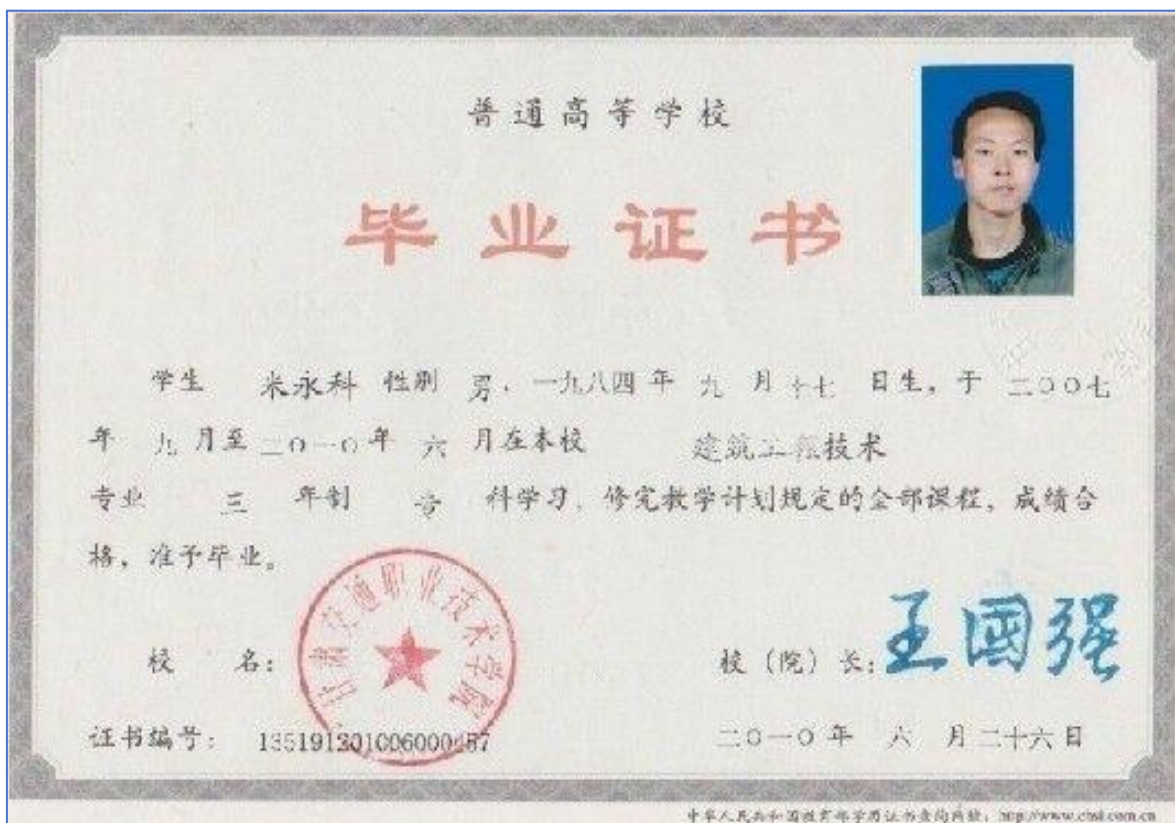 普通高等学校
毕业证书
学生 米永科 性别 男，一九八四年 九 月十七 日生，于 二〇〇七
年 九 月至二〇一〇年 六 月在本校 建筑工程技术
专业 三 年制 专 科学习，修完教学计划规定的全部课程，成绩合
格，准予毕业。
甘肃交通职业技术学院
校 名：
校（院）长：王國强
证书编号：
二〇一〇年 六 月二十六日
中华人民共和国教育部学历证书查询网址：http://www.chsi.com.cn